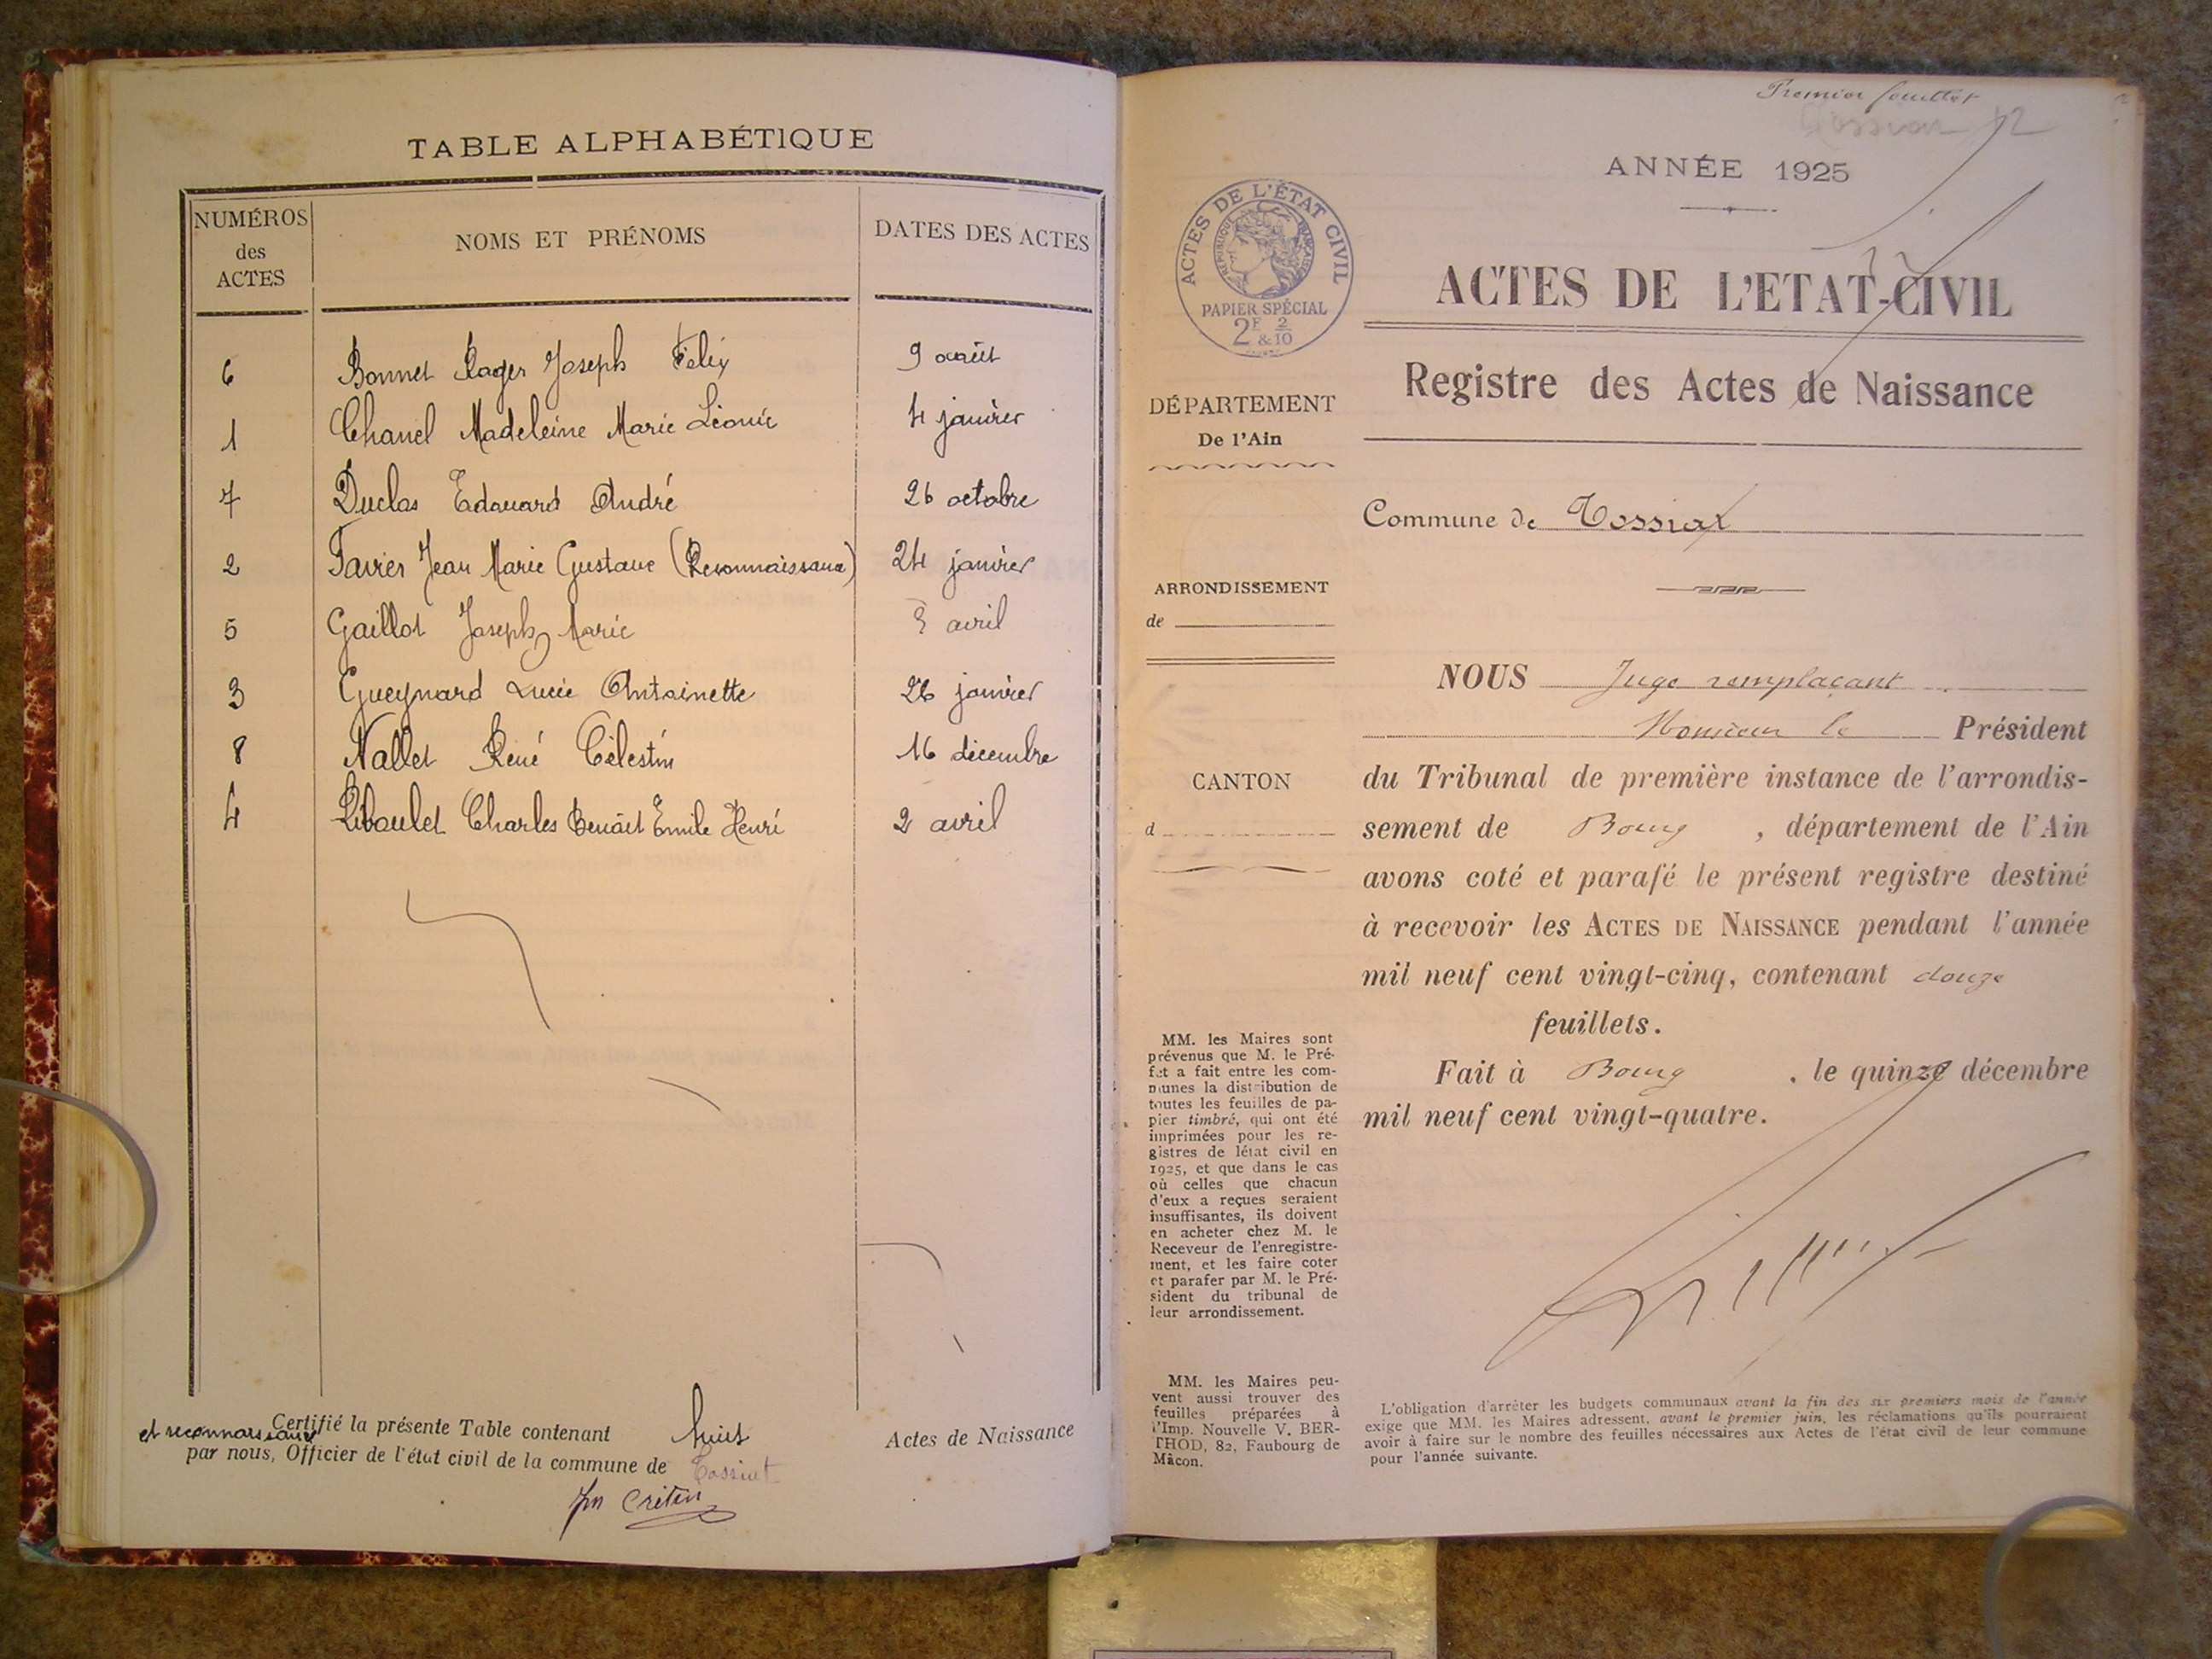 TABLE ALPHABÉTIQUE
NUMÉROS des ACTES
NOMS ET PRÉNOMS
DATES DES ACTES
6 Bonnet Roger Joseph Felix 9 août
1 Chanel Madeleine Marie Léonie 4 janvier
7 Duclos Edouard André 26 octobre
2 Favier Jean Marie Gustave (Reconnaissance) 24 janvier
5 Gaillot Joseph Marie 3 avril
3 Gueynard Lucie Antoinette 26 janvier
8 Nallet René Célestin 16 décembre
4 Riboulet Charles Benoit Emile Henri 2 avril
Certifié la présente Table contenant huit Actes de Naissance
et reconnaissance
par nous, Officier de l'état civil de la commune de Tossiat
Premier feuillet
ANNÉE 1925
ACTES DE L'ÉTAT CIVIL
RÉPUBLIQUE FRANÇAISE
PAPIER SPÉCIAL
2F & 2/10
ACTES DE L'ETAT-CIVIL
Registre des Actes de Naissance
DÉPARTEMENT
De l'Ain
Commune de Tossiat
ARRONDISSEMENT
de
CANTON
d
NOUS Juge remplaçant
Monsieur le Président
du Tribunal de première instance de l'arrondis-
sement de Bourg , département de l'Ain
avons coté et parafé le présent registre destiné
à recevoir les ACTES DE NAISSANCE pendant l'année
mil neuf cent vingt-cinq, contenant douze
feuillets.
Fait à Bourg , le quinze décembre
mil neuf cent vingt-quatre.
MM. les Maires sont
prévenus que M. le Pré-
fet a fait entre les com-
munes la distribution de
toutes les feuilles de pa-
pier timbré, qui ont été
imprimées pour les re-
gistres de létat civil en
1925, et que dans le cas
où celles que chacun
d'eux a reçues seraient
insuffisantes, ils doivent
en acheter chez M. le
Receveur de l'enregistre-
ment, et les faire coter
et parafer par M. le Pré-
sident du tribunal de
leur arrondissement.
MM. les Maires peu-
vent aussi trouver des
feuilles préparées à
l'Imp. Nouvelle V. BER-
THOD, 82, Faubourg de
Mâcon.
L'obligation d'arrêter les budgets communaux avant la fin des six premiers mois de l'année
exige que MM. les Maires adressent, avant le premier juin, les réclamations qu'ils pourraient
avoir à faire sur le nombre des feuilles nécessaires aux Actes de l'état civil de leur commune
pour l'année suivante.